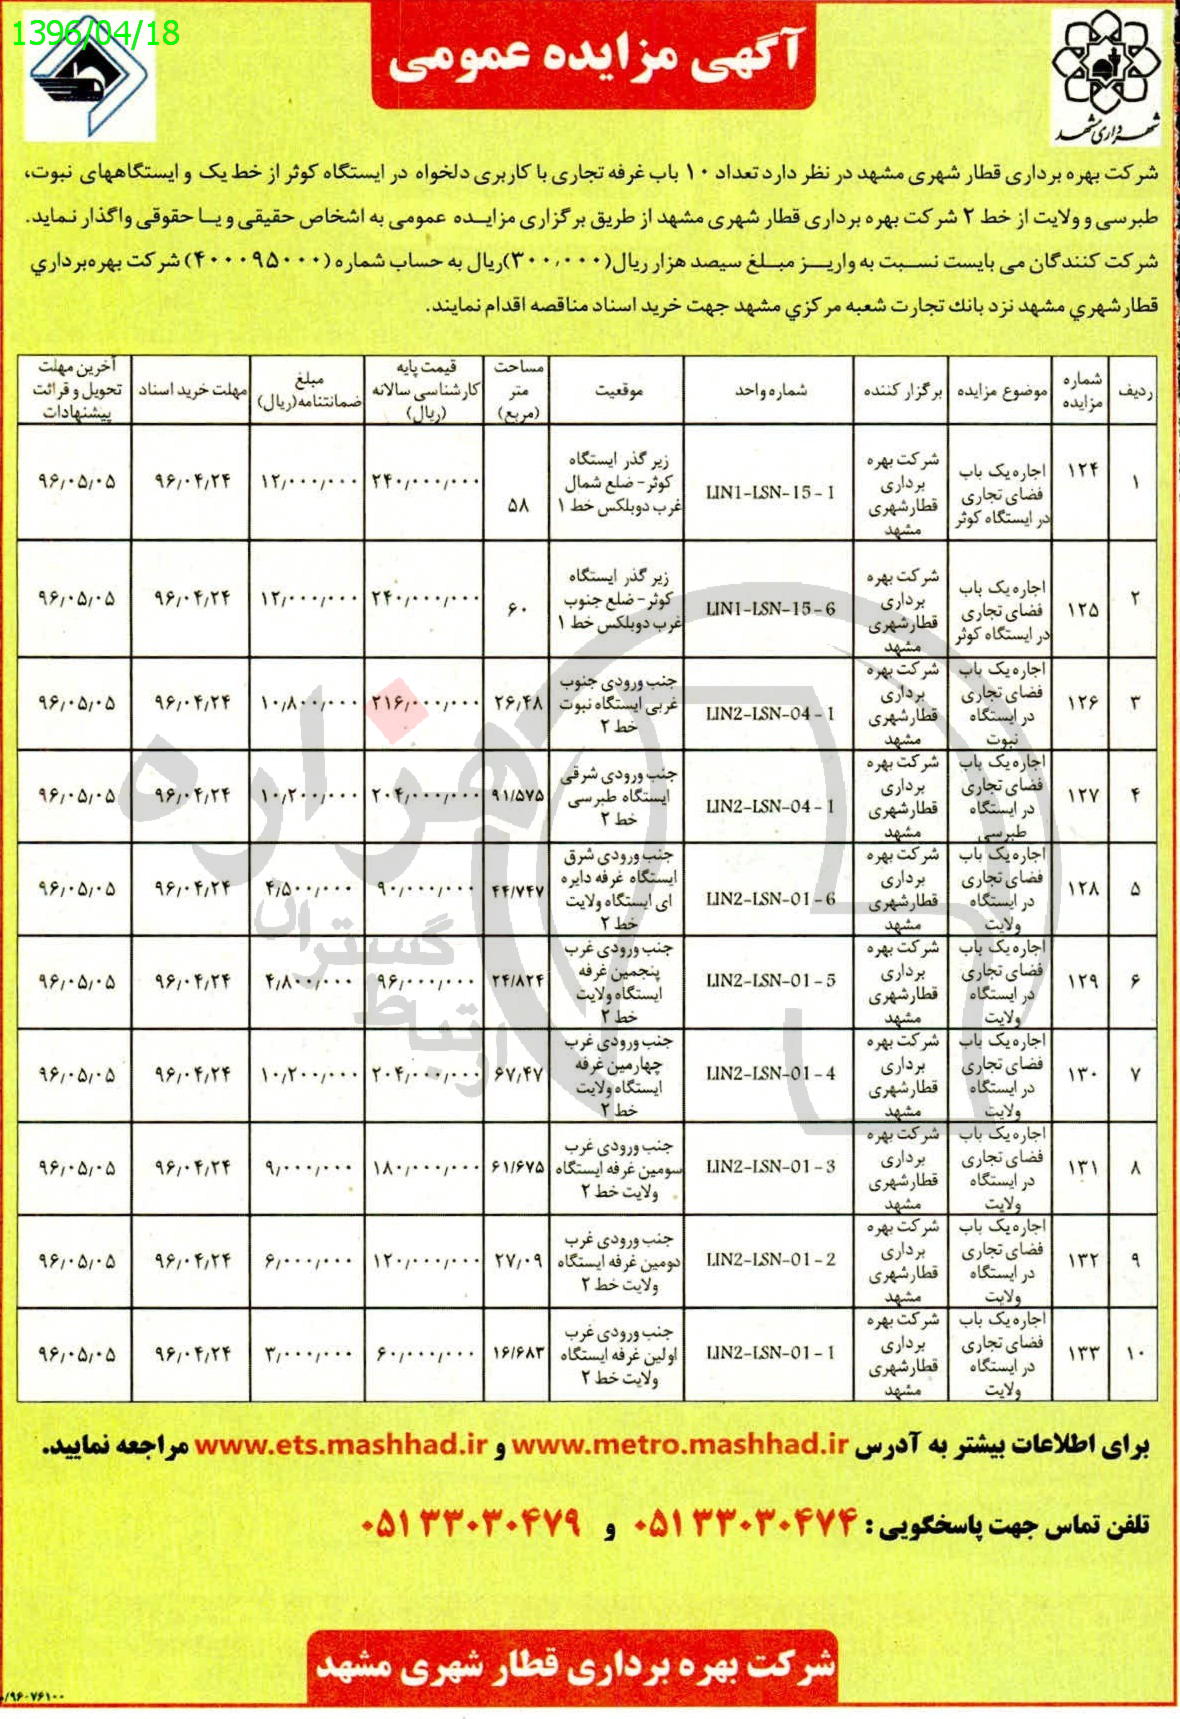 1396/04/18
آگهی مزایده عمومی
شهرداری مشهد
شرکت بهره برداری قطار شهری مشهد در نظر دارد تعداد ۱۰ باب غرفه تجاری با کاربری دلخواه در ایستگاه کوثر از خط یک و ایستگاههای نبوت،
طبرسی و ولایت از خط ۲ شرکت بهره برداری قطار شهری مشهد از طریق برگزاری مزایده عمومی به اشخاص حقیقی و یا حقوقی واگذار نماید.
شرکت کنندگان می بایست نسبت به واریز مبلغ سیصد هزار ریال(۳۰۰,۰۰۰)ریال به حساب شماره (۴۰۰۰۹۵۰۰۰) شرکت بهره‌برداري
قطارشهري مشهد نزد بانك تجارت شعبه مركزي مشهد جهت خرید اسناد مناقصه اقدام نمایند.
ردیف | شماره مزایده | موضوع مزایده | برگزار کننده | شماره واحد | موقعیت | مساحت متر (مربع) | قیمت پایه کارشناسی سالانه (ریال) | مبلغ ضمانتنامه(ریال) | مهلت خرید اسناد | آخرین مهلت تحویل و قرائت پیشنهادات
۱ | ۱۲۴ | اجاره یک باب فضای تجاری در ایستگاه کوثر | شرکت بهره برداری قطارشهری مشهد | LIN1-LSN-15-1 | زیر گذر ایستگاه کوثر- ضلع شمال غرب دوبلکس خط ۱ | ۵۸ | ۲۴۰,۰۰۰,۰۰۰ | ۱۲,۰۰۰,۰۰۰ | ۹۶,۰۴,۲۴ | ۹۶,۰۵,۰۵
۲ | ۱۲۵ | اجاره یک باب فضای تجاری در ایستگاه کوثر | شرکت بهره برداری قطارشهری مشهد | LIN1-LSN-15-6 | زیر گذر ایستگاه کوثر- ضلع جنوب غرب دوبلکس خط ۱ | ۶۰ | ۲۴۰,۰۰۰,۰۰۰ | ۱۲,۰۰۰,۰۰۰ | ۹۶,۰۴,۲۴ | ۹۶,۰۵,۰۵
۳ | ۱۲۶ | اجاره یک باب فضای تجاری در ایستگاه نبوت | شرکت بهره برداری قطارشهری مشهد | LIN2-LSN-04-1 | جنب ورودی جنوب غربی ایستگاه نبوت خط ۲ | ۲۶,۴۸ | ۲۱۶,۰۰۰,۰۰۰ | ۱۰,۸۰۰,۰۰۰ | ۹۶,۰۴,۲۴ | ۹۶,۰۵,۰۵
۴ | ۱۲۷ | اجاره یک باب فضای تجاری در ایستگاه طبرسی | شرکت بهره برداری قطارشهری مشهد | LIN2-LSN-04-1 | جنب ورودی شرقی ایستگاه طبرسی خط ۲ | ۹۱/۵۷۵ | ۲۰۴,۰۰۰,۰۰۰ | ۱۰,۲۰۰,۰۰۰ | ۹۶,۰۴,۲۴ | ۹۶,۰۵,۰۵
۵ | ۱۲۸ | اجاره یک باب فضای تجاری در ایستگاه ولایت | شرکت بهره برداری قطارشهری مشهد | LIN2-LSN-01-6 | جنب ورودی شرق ایستگاه غرفه دایره ای ایستگاه ولایت خط ۲ | ۴۴/۷۴۷ | ۹۰,۰۰۰,۰۰۰ | ۴,۵۰۰,۰۰۰ | ۹۶,۰۴,۲۴ | ۹۶,۰۵,۰۵
۶ | ۱۲۹ | اجاره یک باب فضای تجاری در ایستگاه ولایت | شرکت بهره برداری قطارشهری مشهد | LIN2-LSN-01-5 | جنب ورودی غرب پنجمین غرفه ایستگاه ولایت خط ۲ | ۲۴/۸۲۴ | ۹۶,۰۰۰,۰۰۰ | ۴,۸۰۰,۰۰۰ | ۹۶,۰۴,۲۴ | ۹۶,۰۵,۰۵
۷ | ۱۳۰ | اجاره یک باب فضای تجاری در ایستگاه ولایت | شرکت بهره برداری قطارشهری مشهد | LIN2-LSN-01-4 | جنب ورودی غرب چهارمین غرفه ایستگاه ولایت خط ۲ | ۶۷,۴۷ | ۲۰۴,۰۰۰,۰۰۰ | ۱۰,۲۰۰,۰۰۰ | ۹۶,۰۴,۲۴ | ۹۶,۰۵,۰۵
۸ | ۱۳۱ | اجاره یک باب فضای تجاری در ایستگاه ولایت | شرکت بهره برداری قطارشهری مشهد | LIN2-LSN-01-3 | جنب ورودی غرب سومین غرفه ایستگاه ولایت خط ۲ | ۶۱/۶۷۵ | ۱۸۰,۰۰۰,۰۰۰ | ۹,۰۰۰,۰۰۰ | ۹۶,۰۴,۲۴ | ۹۶,۰۵,۰۵
۹ | ۱۳۲ | اجاره یک باب فضای تجاری در ایستگاه ولایت | شرکت بهره برداری قطارشهری مشهد | LIN2-LSN-01-2 | جنب ورودی غرب دومین غرفه ایستگاه ولایت خط ۲ | ۲۷,۰۹ | ۱۲۰,۰۰۰,۰۰۰ | ۶,۰۰۰,۰۰۰ | ۹۶,۰۴,۲۴ | ۹۶,۰۵,۰۵
۱۰ | ۱۳۳ | اجاره یک باب فضای تجاری در ایستگاه ولایت | شرکت بهره برداری قطارشهری مشهد | LIN2-LSN-01-1 | جنب ورودی غرب اولین غرفه ایستگاه ولایت خط ۲ | ۱۶/۶۸۳ | ۶۰,۰۰۰,۰۰۰ | ۳,۰۰۰,۰۰۰ | ۹۶,۰۴,۲۴ | ۹۶,۰۵,۰۵
هزاره
گستران
ارتباط
برای اطلاعات بیشتر به آدرس www.metro.mashhad.ir و www.ets.mashhad.ir مراجعه نمایید.
تلفن تماس جهت پاسخگویی : ۰۵۱۳۳۰۳۰۴۷۴ و ۰۵۱۳۳۰۳۰۴۷۹
شرکت بهره برداری قطار شهری مشهد
/۹۶۰۷۶۱۰۰